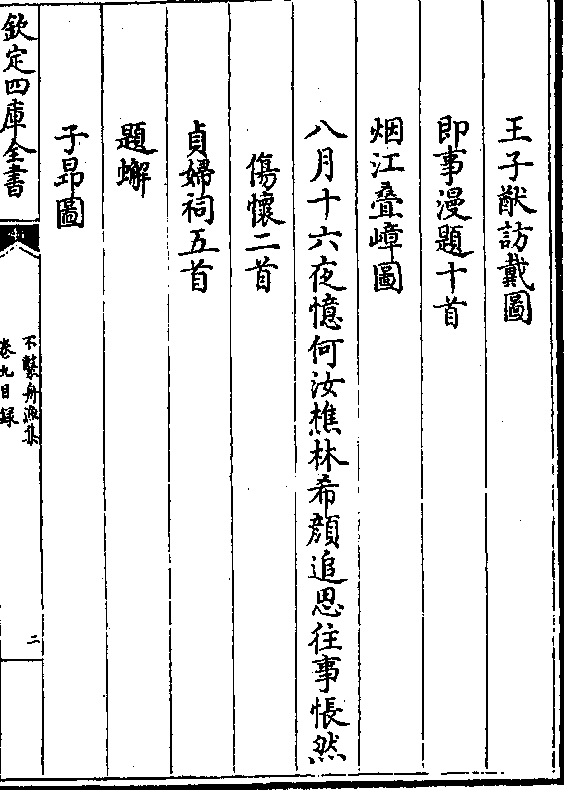 王子猷訪戴圖
即事漫題十首
烟江疊嶂圖
八月十六夜憶何汝樵林希顔追思往事悵然
傷懷二首
貞婦祠五首
題蠏
子昂圖
欽定四庫全書
不繫舟漁集
卷九目録
二